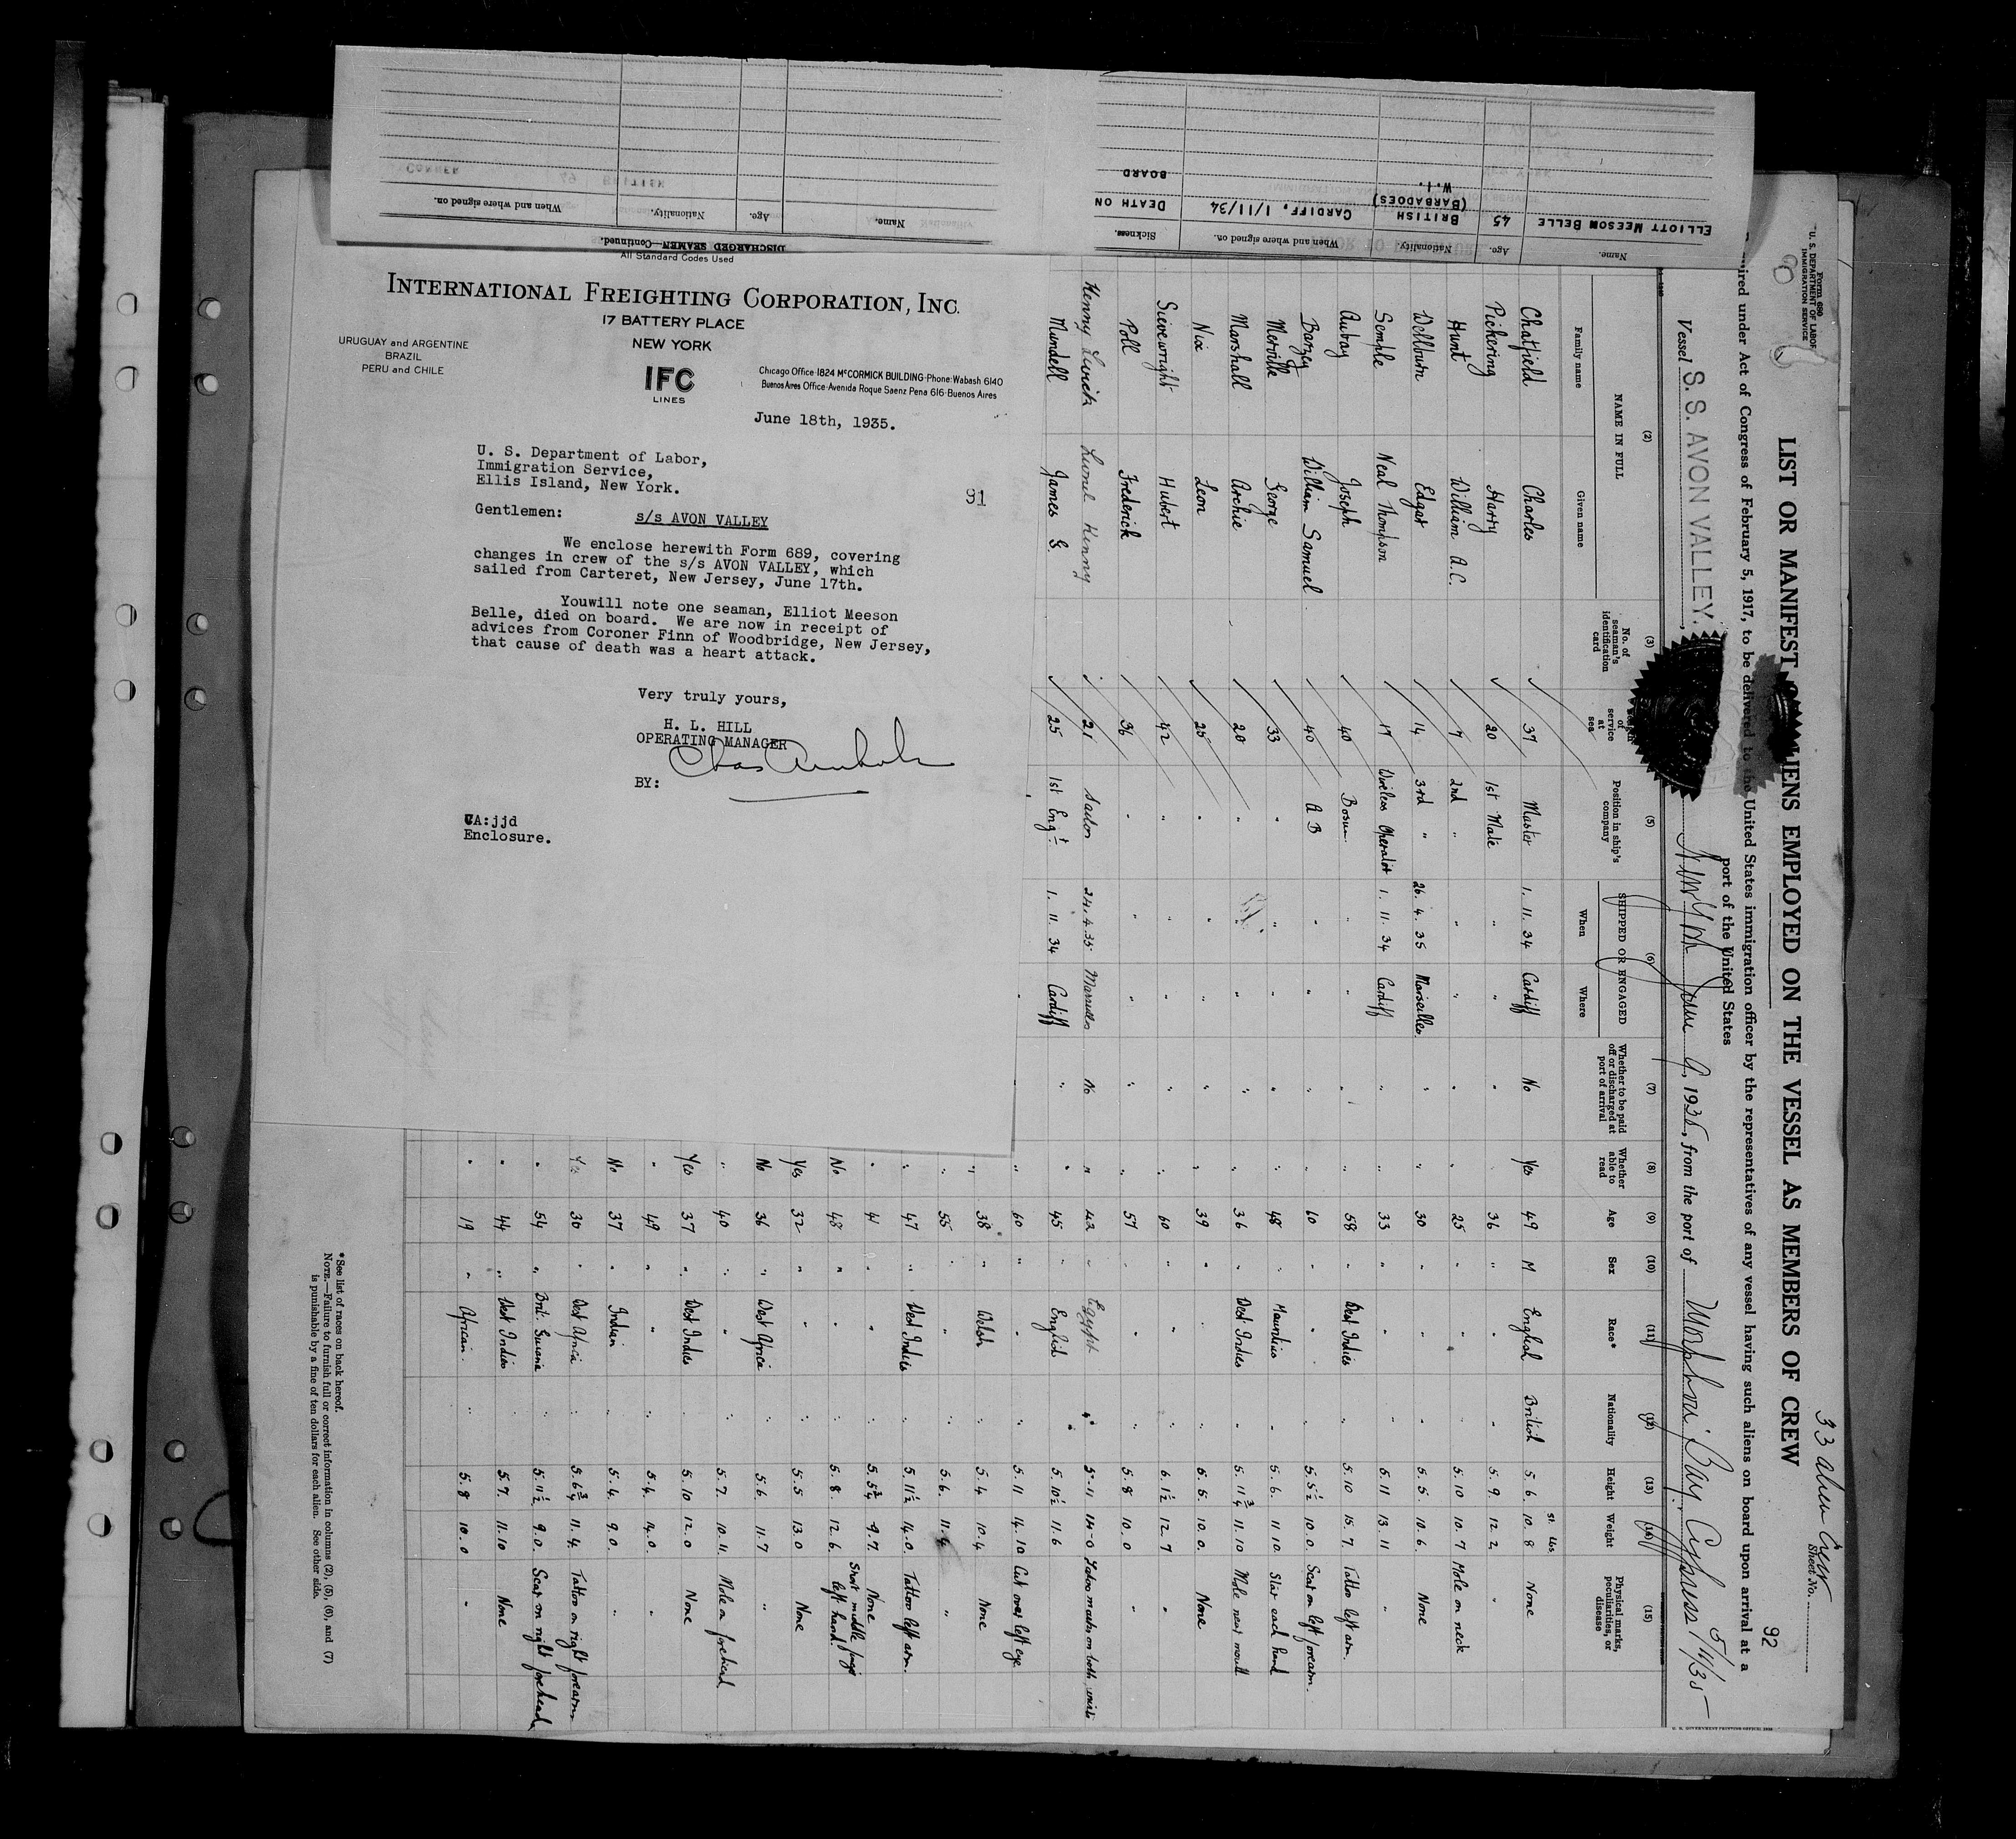 DISCHARGED SEAMEN—Continued.
Name.
Age.
Nationality.
When and where signed on.
Name.
Age.
Nationality.
When and where signed on.
Sickness.
ELLIOTT MEESON BELLE
45
BRITISH
(BARBADOES)
W.I.
CARDIFF, 1/11/34
DEATH ON
BOARD
All Standard Codes Used
INTERNATIONAL FREIGHTING CORPORATION, INC.
17 BATTERY PLACE
NEW YORK
URUGUAY and ARGENTINE
BRAZIL
PERU and CHILE
IFC
LINES
Chicago Office·1824 McCORMICK BUILDING·Phone·Wabash 6140
Buenos Aires Office·Avenida Roque Saenz Pena 616·Buenos Aires
June 18th, 1935.
U. S. Department of Labor,
Immigration Service,
Ellis Island, New York.
91
Gentlemen:
s/s AVON VALLEY
We enclose herewith Form 689, covering
changes in crew of the s/s AVON VALLEY, which
sailed from Carteret, New Jersey, June 17th.
Youwill note one seaman, Elliot Meeson
Belle, died on board. We are now in receipt of
advices from Coroner Finn of Woodbridge, New Jersey,
that cause of death was a heart attack.
Very truly yours,
H. L. HILL
OPERATING MANAGER
BY:
CA:jjd
Enclosure.
Form 680
U. S. DEPARTMENT OF LABOR
IMMIGRATION SERVICE
33 alien Crew
Sheet No.
92
LIST OR MANIFEST OF ALIENS EMPLOYED ON THE VESSEL AS MEMBERS OF CREW
under Act of Congress of February 5, 1917, to be delivered to the United States immigration officer by the representatives of any vessel having such aliens on board upon arrival at a
port of the United States
Vessel S. S. AVON VALLEY. New York June 9, 1935, from the port of Morphou Bay Cyprus 5/11/35
(2) NAME IN FULL
Family name
Given name
(3) No. of seaman's identification card
service at sea
(5) Position in ship's company
(6) SHIPPED OR ENGAGED
When
Where
(7) Whether to be paid off or discharged at port of arrival
(8) Whether able to read
(9) Age
(10) Sex
(11) Race*
(12) Nationality
(13) Height
(14) Weight
(15) Physical marks, peculiarities, or disease
St. Lbs.
Chatfield Charles 37 Master 1. 11. 34 Cardiff No Yes 49 M English British 5. 6. 10. 8 None
Pickering Harry 20 1st Mate " " " " 36 " " " 5. 9. 12 2 "
Hunt William A.C. 7 2nd " " " " " 25 " " " 5. 10 10. 7 Mole on neck
Edgar 14 3rd " 26. 4. 35 Marseilles " " 30 " " " 5. 5. 10. 6. None
Semple Neal Thompson 17 Wireless Operator 1. 11. 34 Cardiff " " 33 " " " 5. 11 13. 11 "
Aubray Joseph 40 Bosun " " " " 58 " West Indies " 5. 10 15. 7. Tattoo left arm.
Barzey William Samuel 40 A B " " " " 60 " " " 5. 5½ 10. 0. Scar on left forearm.
Merville George 33 " " " " " 48 " Mauritius " 5. 6. 11 10. Star each hand
Marshall Archie 20 " " " " " 36 " West Indies " 5. 11¾ 11. 10 Mole near mouth
Nix Leon 25 " " " " " 39 " " " 10. 0. None
Sievewright Hubert 42 " " " " " 60 " " " 6. 1½ 12. 7 "
Poll Frederick 36 " " " " " 57 " " " 5. 8 10. 0 "
Lionel Henny 21 Sailor 24.4.35 Marseilles No " 42 " Egypt " 5-11 14-0
Mundell James G. 25 1st Engr. 1. 11. 34 Cardiff " " 45 " English " 5. 10½ 11. 6
" 60 " " " 5. 11 14. 10 Cut over left eye
" 38 " Welsh " 5. 4 10. 4 None
" 55 " " " 5. 6. "
" 47 " West Indies " 5. 11½ 14. 0. Tattoo left arm.
" 41 " " " 5. 5¾ 9. 7. None
No 48 " " " 5. 8. 12. 6. Short middle finger left hand
Yes 32 " " " 5. 5 13. 0 None
No 36 " West Africa " 5. 6. 11. 7 "
" 40 " " " 5. 7. 10. 11. Mole on forehead
Yes 37 " West Indies " 5. 10 12. 0 None
" 49 " " " 5. 4. "
No 37 " Indian " 5. 4. 9. 0. "
30 " West Africa " 5. 6¾ 11. 4. Tattoo on right forearm
" 54 " Brit. Guiana " 5. 11½ 9. 0. Scar on right forehead
" 44 " West Indies 5. 7. 11. 10 None
" 19 " African. " 5. 8 10. 0 "
*See list of races on back hereof.
NOTE.—Failure to furnish full or correct information in columns (2), (5), (6), and (7)
is punishable by a fine of ten dollars for each alien. See other side.